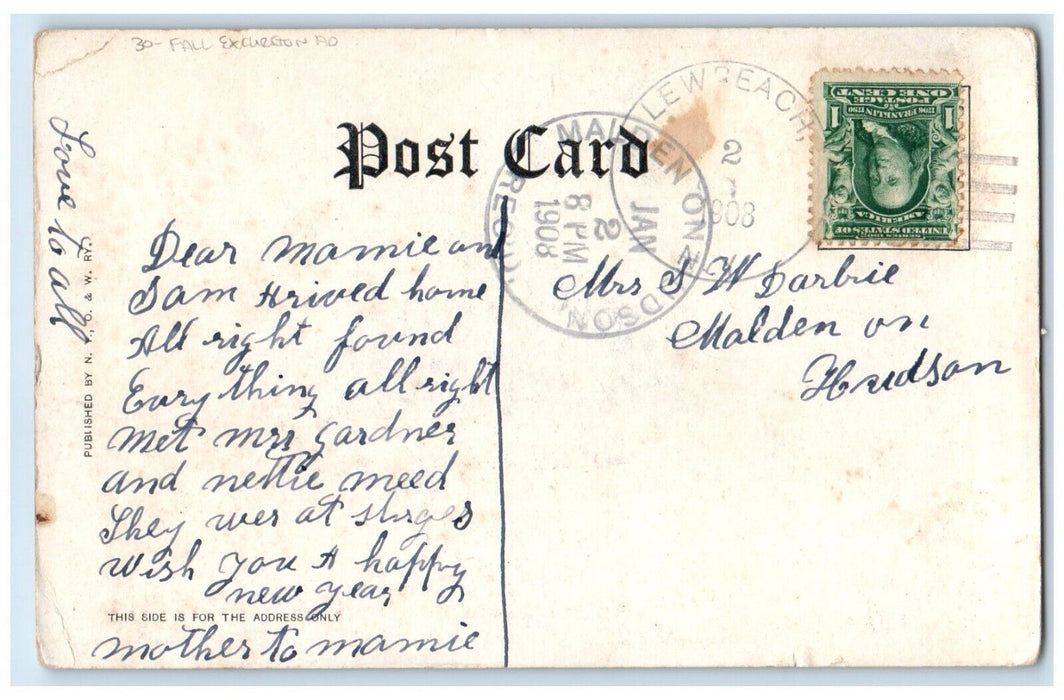 30- FALL EXCURSION AD
Post Card
Love to all
PUBLISHED BY N. Y., O. & W. RY.
Dear mamie and
Sam Arived home
All right found
Evry thing all right
met mrs gardner
and nettie meed
They wer at
wish you A happy
new year
THIS SIDE IS FOR THE ADDRESS ONLY
mother to mamie
LEWBEACH,
2
JAN
1908
MALDEN ON HUDSON
JAN
2
8 PM
1908
REC'D.
1 POSTAGE 1
ONE CENT
1706 FRANKLIN 1790
SERIES 1902
UNITED STATES OF
AMERICA
Mrs S W Darbie
Malden on
Hudson